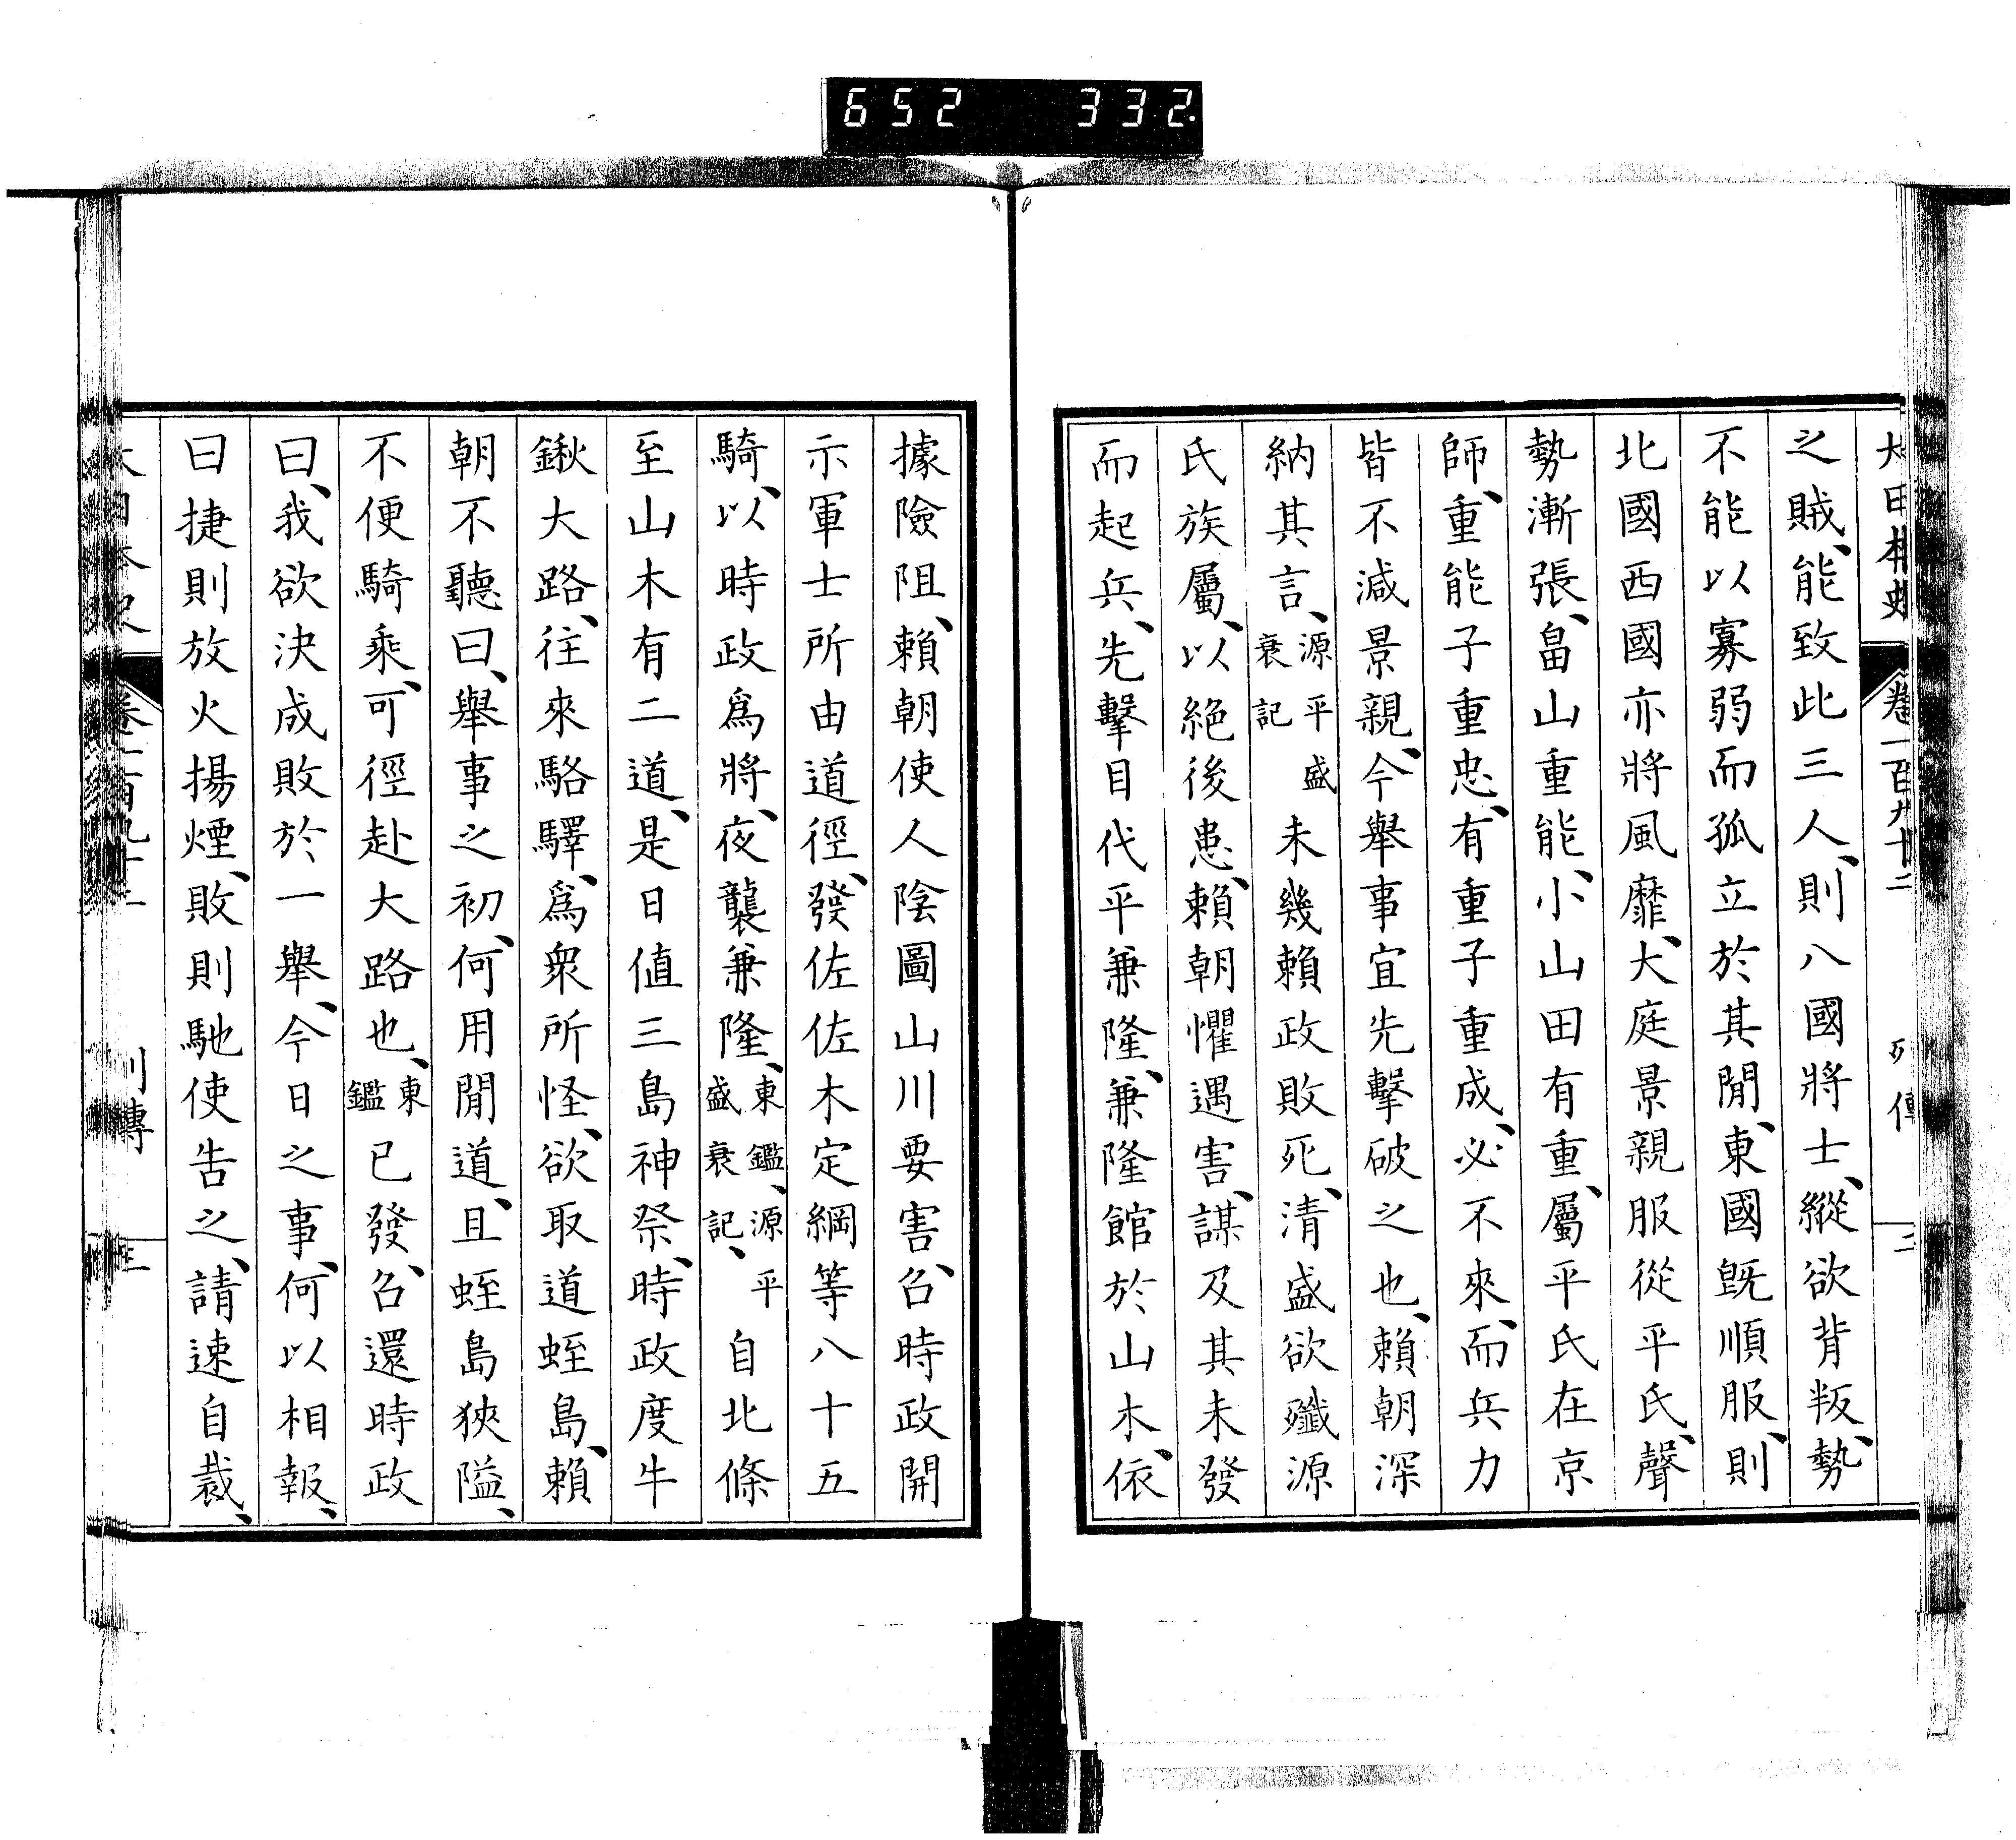 652 332
大日本史 卷一百九十二 列傳 二
之賊、能致此三人、則八國將士、縱欲背叛、勢
不能以寡弱而孤立於其閒、東國既順服、則
北國西國亦將風靡、大庭景親服從平氏、聲
勢漸張、畠山重能、小山田有重、屬平氏在京
師、重能子重忠、有重子重成、必不來、而兵力
皆不減景親、今舉事宜先擊破之也、賴朝深
納其言、源平盛衰記未幾賴政敗死、清盛欲殲源
氏族屬、以絕後患、賴朝懼遇害、謀及其未發
而起兵、先擊目代平兼隆、兼隆館於山木、依
據險阻、賴朝使人陰圖山川要害、召時政開
示軍士所由道徑、發佐佐木定綱等八十五
騎、以時政爲將、夜襲兼隆、東鑑、源平盛衰記、自北條
至山木有二道、是日値三島神祭、時政度牛
鍬大路、往來駱驛、爲衆所怪、欲取道蛭島、賴
朝不聽曰、舉事之初、何用閒道、且蛭島狹隘、
不便騎乘、可徑赴大路也、東鑑已發、召還時政
曰、我欲決成敗於一舉、今日之事、何以相報、
曰捷則放火揚煙、敗則馳使告之、請速自裁、
大日本史 卷一百九十二 列傳 三